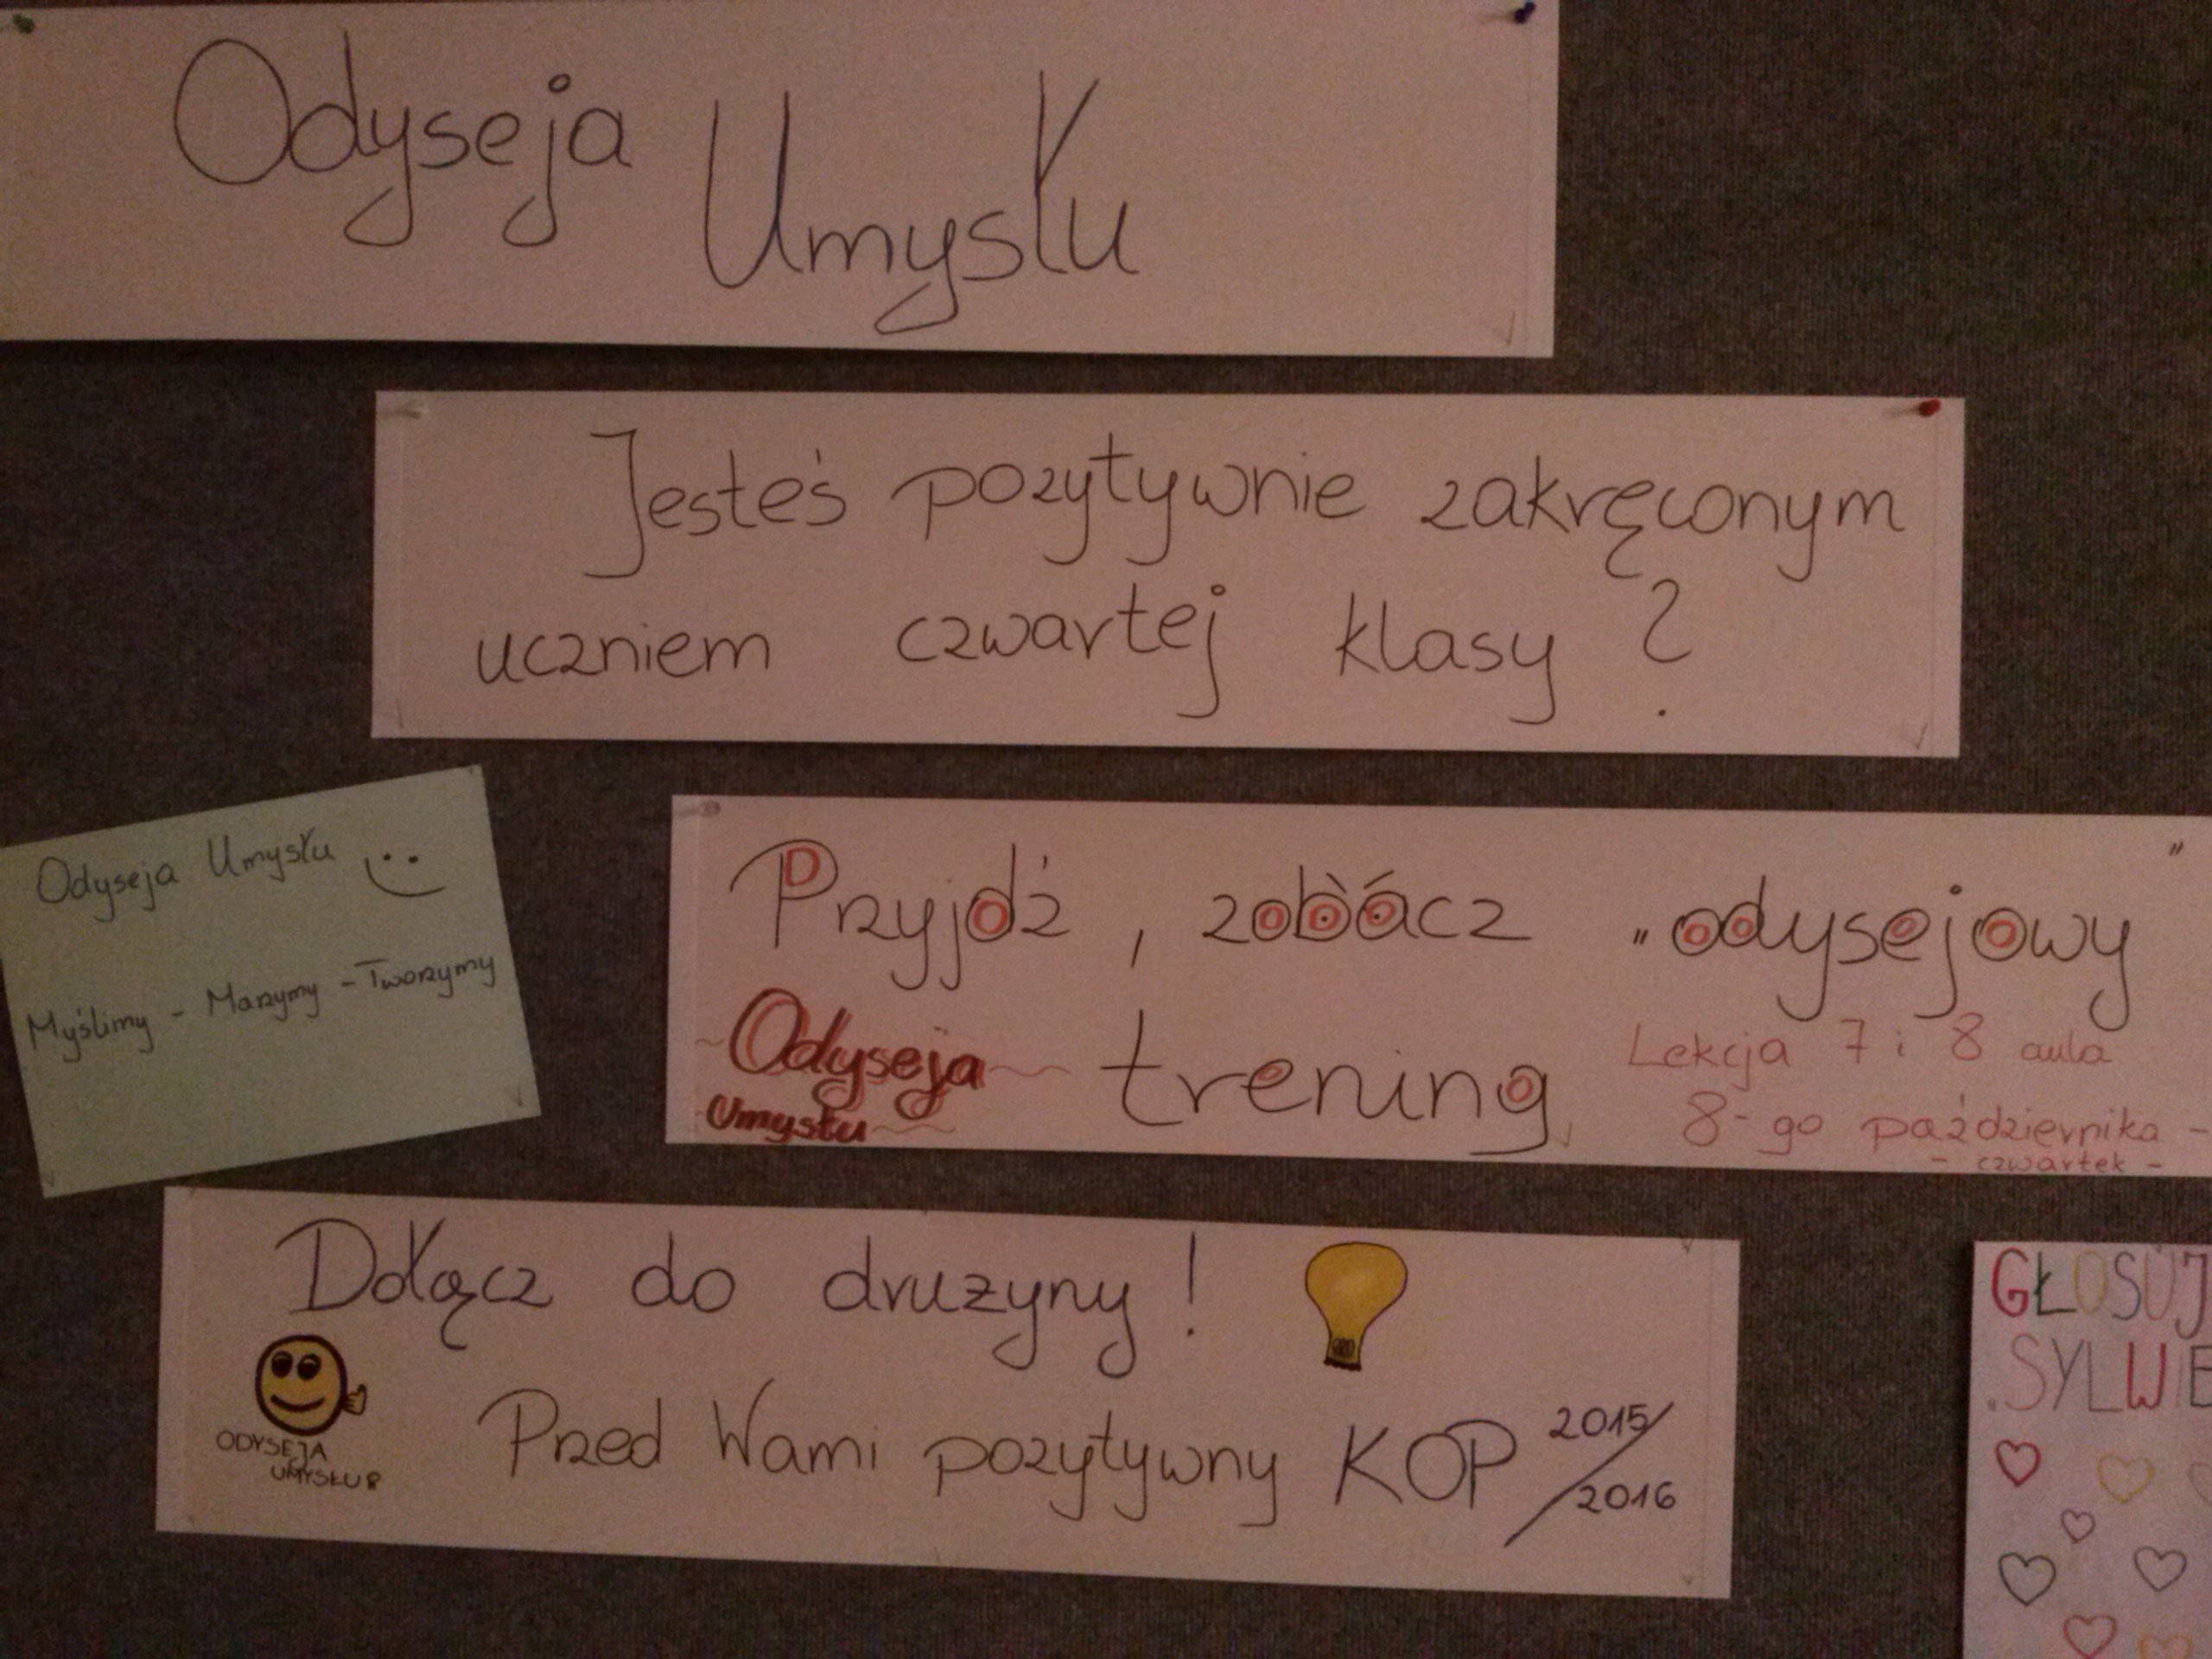 Odyseja
Umysłu
Jesteś pozytywnie zakręconym
uczniem czwartej klasy ?
Odyseja Umysłu
Myślimy - Marzymy - Tworzymy
Przyjdź , zobacz „odysejowy"
trening
Odyseja
Umysłu
Lekcja 7 i 8 aula
8-go października -
- czwartek -
Dołącz do drużyny !
ODYSEJA
UMYSŁU
Przed Wami pozytywny KOP 2015/
2016
GŁOSUJ
SYLWIE